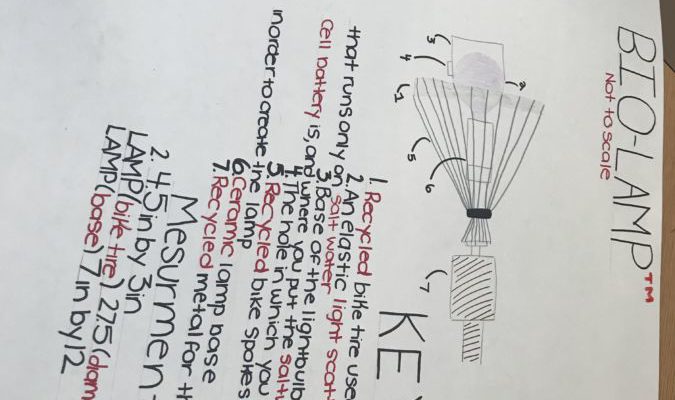 BIO-LAMP™
Not to scale
3
4
2
1
5
6
7
KE
1. Recycled bike tire use
2. An elastic light scat-
that runs only on salt water
3. Base of the lightbulb
cell battery is, and where you put the salt
4. The hole in which you
5. Recycled bike spokes
inorder to create the lamp
6. Ceramic lamp base
7. Recycled metal for th
Mesurmen
2. 4.5in by 3in
LAMP(bike tire) 27.5(diam
LAMP(base) 7in by 12